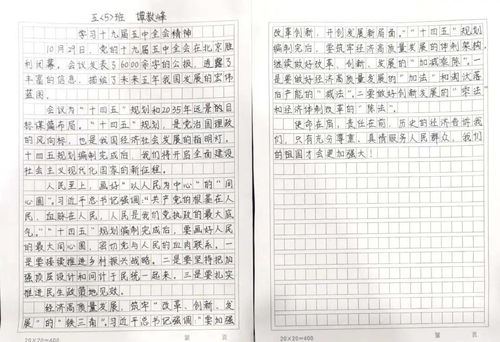 五〈5〉班 谭教峰
学习十九届五中全会精神
10月29日，党的十九届五中全会在北京胜
利闭幕。会议发表了6000余字的公报，透露了
丰富的信息，描绘了未来五年我国发展的宏伟
蓝图。
会议为“十四五”规划和2035年远景的目
标谋篇布局。“十四五”规划，是党治国理政
的风向标，也是我国经济社会发展的指明灯。
十四五规划编制完成后，我们将开启全面建设
社会主义现代化国家的新征程。
人民至上，画好“以人民为中心”的“同
心圆”。习近平总书记强调：“共产党的根基在人
民，血脉在人民，人民是我们党执政的最大底
气。”“十四五”规划编制完成后，要画好人民
的最大同心圆，密切党与人民的血肉联系。一
是要接续推进乡村振兴战略。二是要坚持把加
强顶层设计和问计于民统一起来。三是要扎实
推进民生政策地见效。
经济高质量发展，筑牢“改革、创新、发
展”的“铁三角”。习近平总书记强调：“要加强
20×20=400 第 页
改革创新，开创发展新局面。”“十四五”规划
编制完后，要筑牢经济高质量发展的体制架构，
继续做好改革、创新、发展的“加减乘除”。一
是要做好经济高质量发展的“加法”和淘汰落
后产能的“减法”。二要做好创新发展的“乘法”
和经济体制改革的“除法”。
使命在肩，责任在前，历史的经济告诉我
们，只有充分尊重、真情服务人民群众，我们
的祖国才会更加强大！
20×20=400 第 页